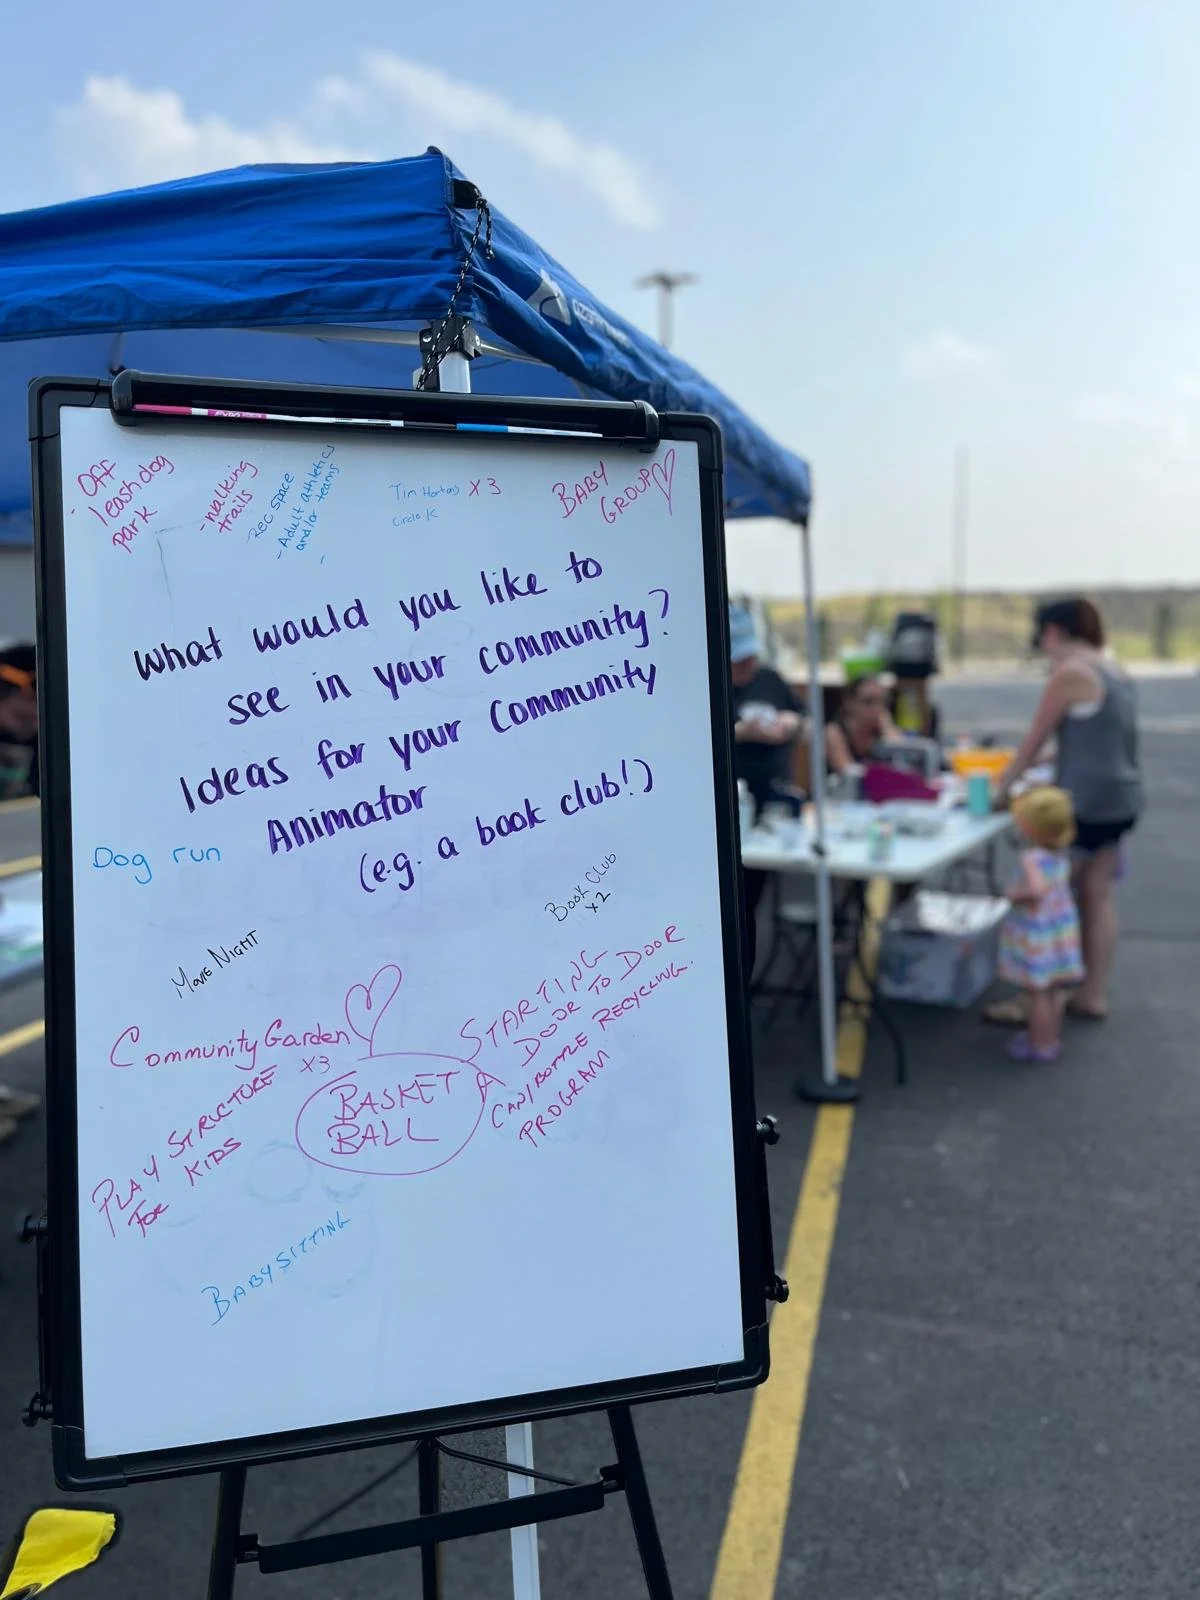 - Off
leash dog
park
- walking
trails
- Rec space
- Adult athletics
and/or teams
-
Tim Hortons x 3
Circle K
BABY
GROUP
What would you like to
see in your community?
Ideas for your Community
Animator
(e.g. a book club!)
Dog run
Book Club
x2
Movie Night
Community Garden
x3
PLAY STRUCTURE
FOR KIDS
BASKET
BALL
STARTING
A DOOR TO DOOR
CAN/BOTTLE RECYCLING.
PROGRAM
BABYSITTING